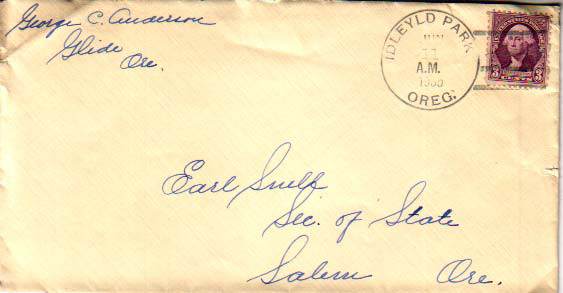 George C. Anderson
Glide
Ore.
IDLEYLD PARK
JUN
11
A.M.
OREG.
3 CENTS 3
Earl Snell
Sec. of State
Salem Ore.